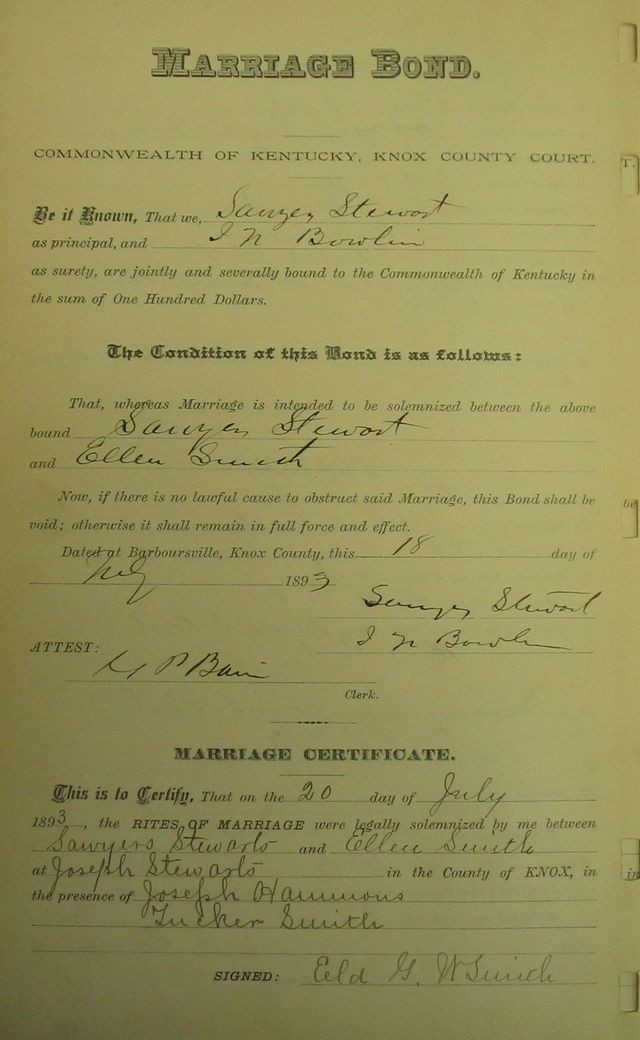 MARRIAGE BOND.
COMMONWEALTH OF KENTUCKY, KNOX COUNTY COURT.
Be it Known, That we, Sawyer Stewart
as principal, and I N Bowlin
as surety, are jointly and severally bound to the Commonwealth of Kentucky in
the sum of One Hundred Dollars.
The Condition of this Bond is as follows:
That, whereas Marriage is intended to be solemnized between the above
bound Sawyer Stewart
and Ellen Smith
Now, if there is no lawful cause to obstruct said Marriage, this Bond shall be
void; otherwise it shall remain in full force and effect.
Dated at Barboursville, Knox County, this 18 day of
July 1893
Sawyer Stewart
I N Bowlin
ATTEST:
Clerk.
MARRIAGE CERTIFICATE.
This is to Certify, That on the 20 day of July
1893, the RITES OF MARRIAGE were legally solemnized by me between
Sawyers Stewarts and Ellen Smith
at Joseph Stewarts in the County of KNOX, in
the presence of Joseph Hammons
Tucker Smith
SIGNED: Eld G. W Smith